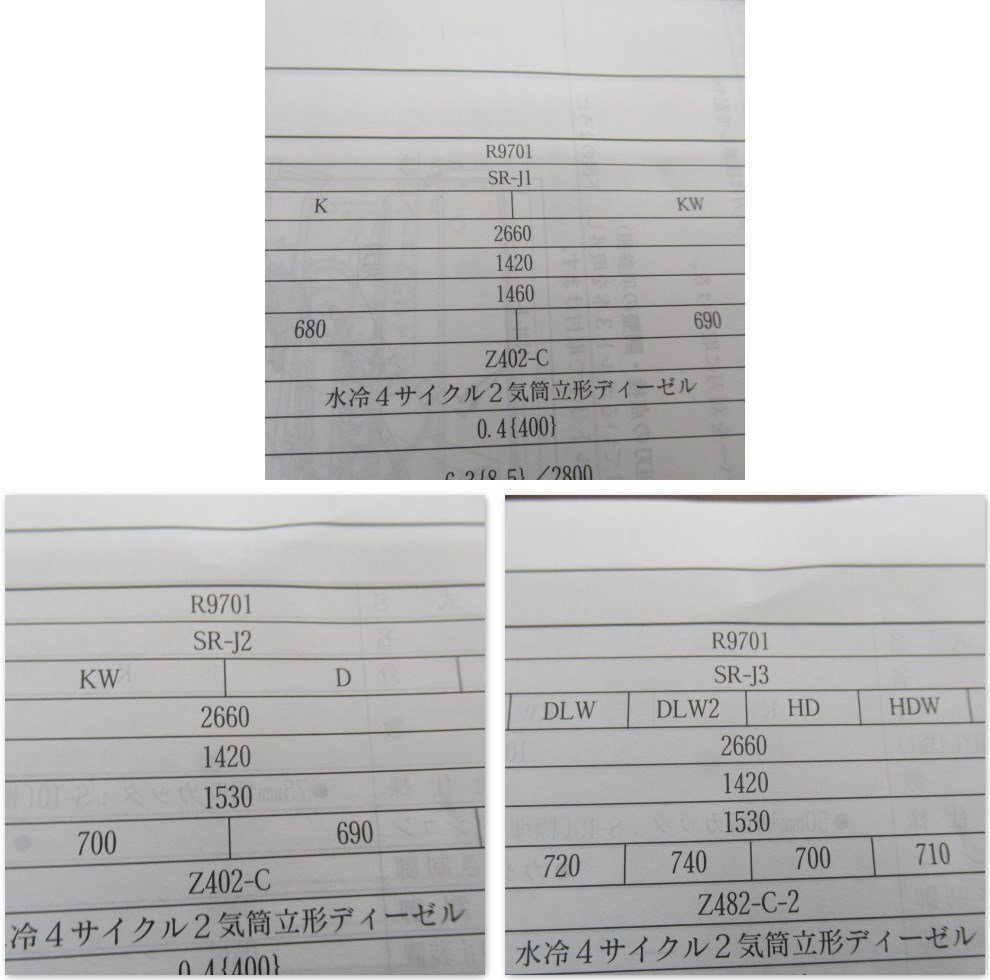 R9701
SR-J1
K KW
2660
1420
1460
680 690
Z402-C
水冷4サイクル2気筒立形ディーゼル
0.4{400}
6.2{8.5}/2800
R9701
SR-J2
KW D
2660
1420
1530
700 690
Z402-C
冷4サイクル2気筒立形ディーゼル
0.4{400}
R9701
SR-J3
DLW DLW2 HD HDW
2660
1420
1530
720 740 700 710
Z482-C-2
水冷4サイクル2気筒立形ディーゼル